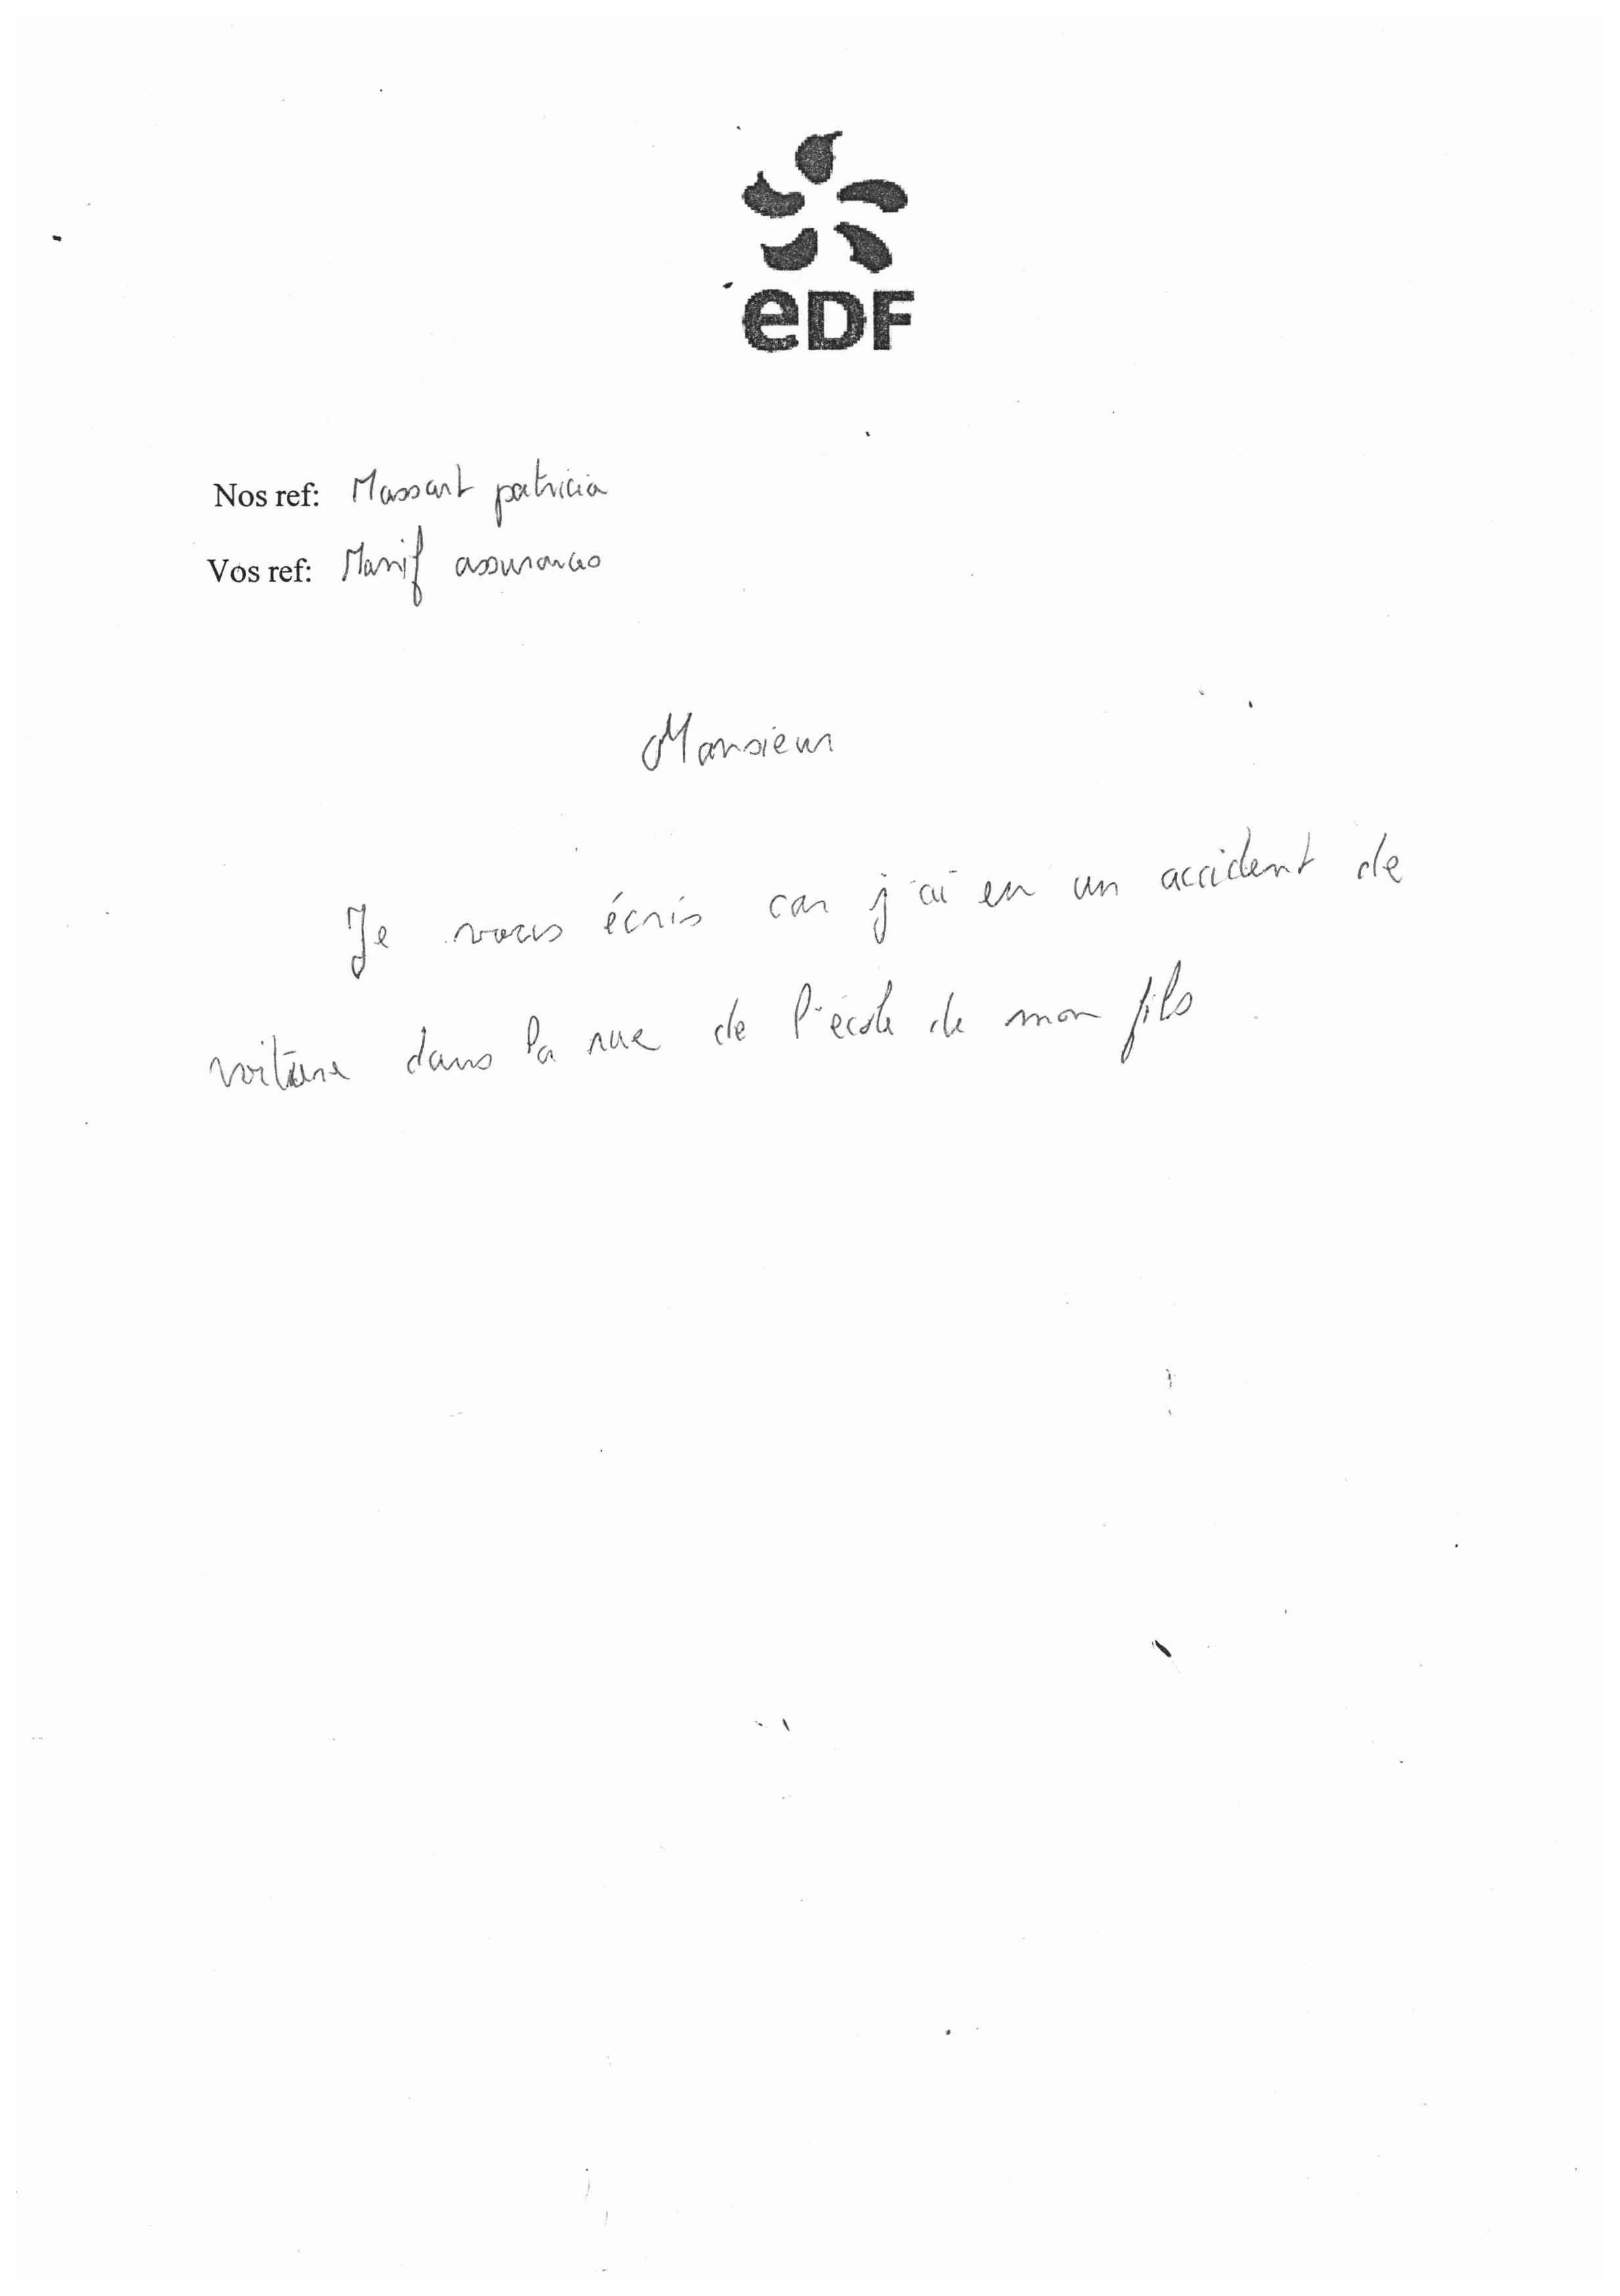 eDF
Nos ref: Massart patricia
Vos ref: Manif assurances
Monsieur
Je vous écris car j'ai eu un accident de
voiture dans la rue de l'école de mon fils.